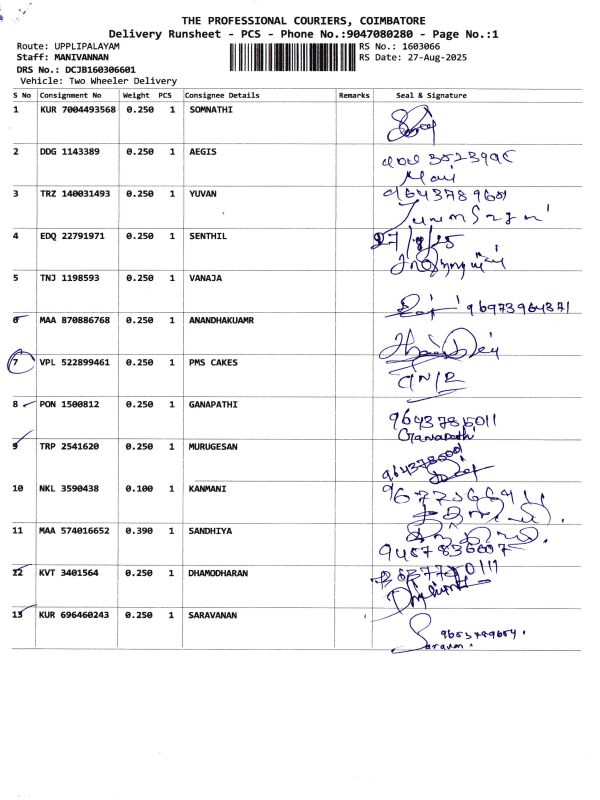 THE PROFESSIONAL COURIERS, COIMBATORE
Delivery Runsheet - PCS - Phone No.:9047080280 - Page No.:1
Route: UPPLIPALAYAM RS No.: 1603066
Staff: MANIVANNAN RS Date: 27-Aug-2025
DRS No.: DCJB160306601
Vehicle: Two Wheeler Delivery
S No Consignment No Weight PCS Consignee Details Remarks Seal & Signature
1 KUR 7004493568 0.250 1 SOMNATHI
2 DDG 1143389 0.250 1 AEGIS
3 TRZ 140031493 0.250 1 YUVAN
4 EDQ 22791971 0.250 1 SENTHIL 27/8/25
5 TNJ 1198593 0.250 1 VANAJA
6 MAA 870886768 0.250 1 ANANDHAKUAMR
7 VPL 522899461 0.250 1 PMS CAKES
8 PON 1500812 0.250 1 GANAPATHI
Ganapathi
9 TRP 2541620 0.250 1 MURUGESAN
10 NKL 3590438 0.100 1 KANMANI
11 MAA 574016652 0.390 1 SANDHIYA
12 KVT 3401564 0.250 1 DHAMODHARAN
13 KUR 696460243 0.250 1 SARAVANAN